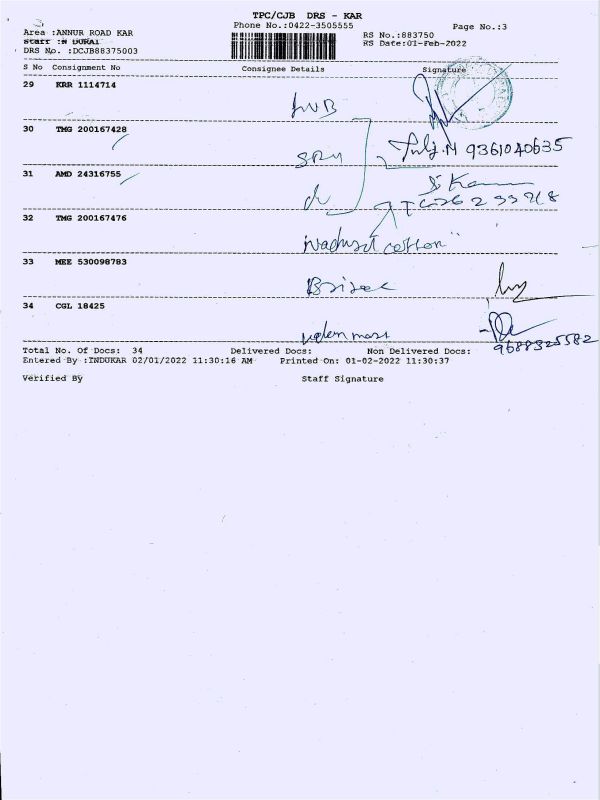 TPC/CJB DRS - KAR
Phone No.:0422-3505555
Page No.:3
Area :ANNUR ROAD KAR
Staff :N DURAI
DRS No. :DCJB88375003
RS No.:883750
RS Date:01-Feb-2022
S No Consignment No Consignee Details Signature
29 KRR 1114714
LVB
30 TMG 200167428
SRM 9361040635
31 AMD 24316755
32 TMG 200167476
cotton
33 MEE 530098783
34 CGL 18425
9688325582
Total No. Of Docs: 34 Delivered Docs: Non Delivered Docs:
Entered By :INDUKAR 02/01/2022 11:30:16 AM Printed On: 01-02-2022 11:30:37
Verified By Staff Signature